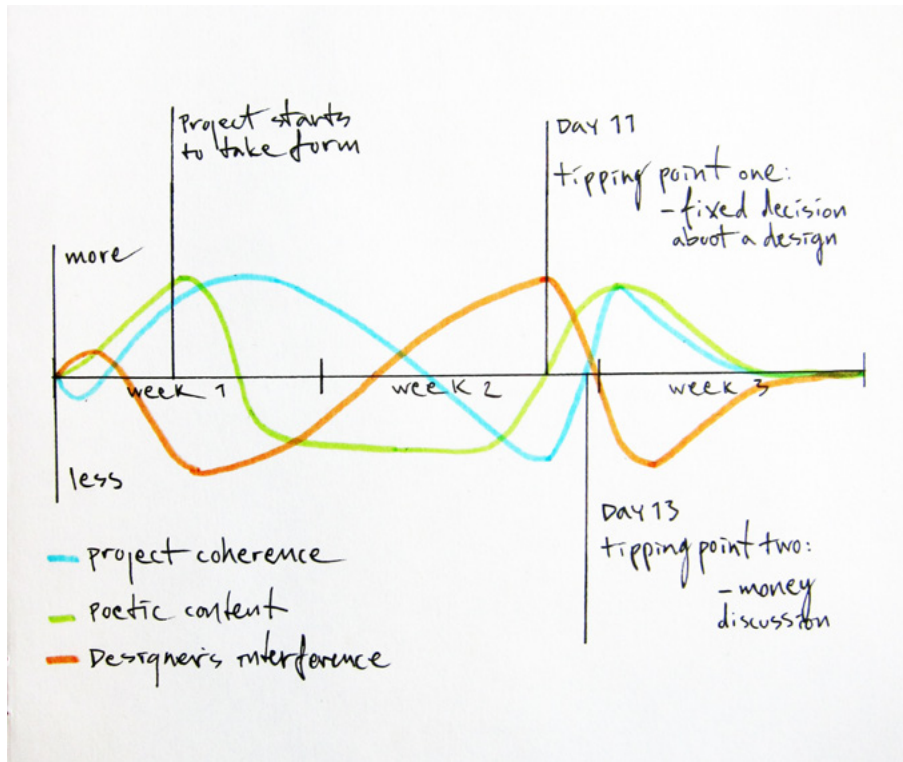 Project starts
to take form
Day 11
tipping point one:
- fixed decision
about a design
more
week 1
week 2
week 3
less
Day 13
tipping point two:
- money
discussion
project coherence
Poetic content
Designer's interference